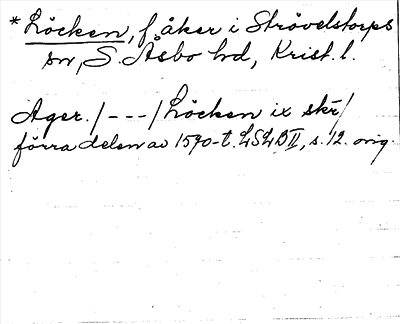 * Löcken, f. åker i Strövelstorps
sn, S. Åsbo hd, Krist. l.
Ager. / - - - / Löcken ix skr /
förra delen av 1570-t. LSLB II, s. 12. orig.